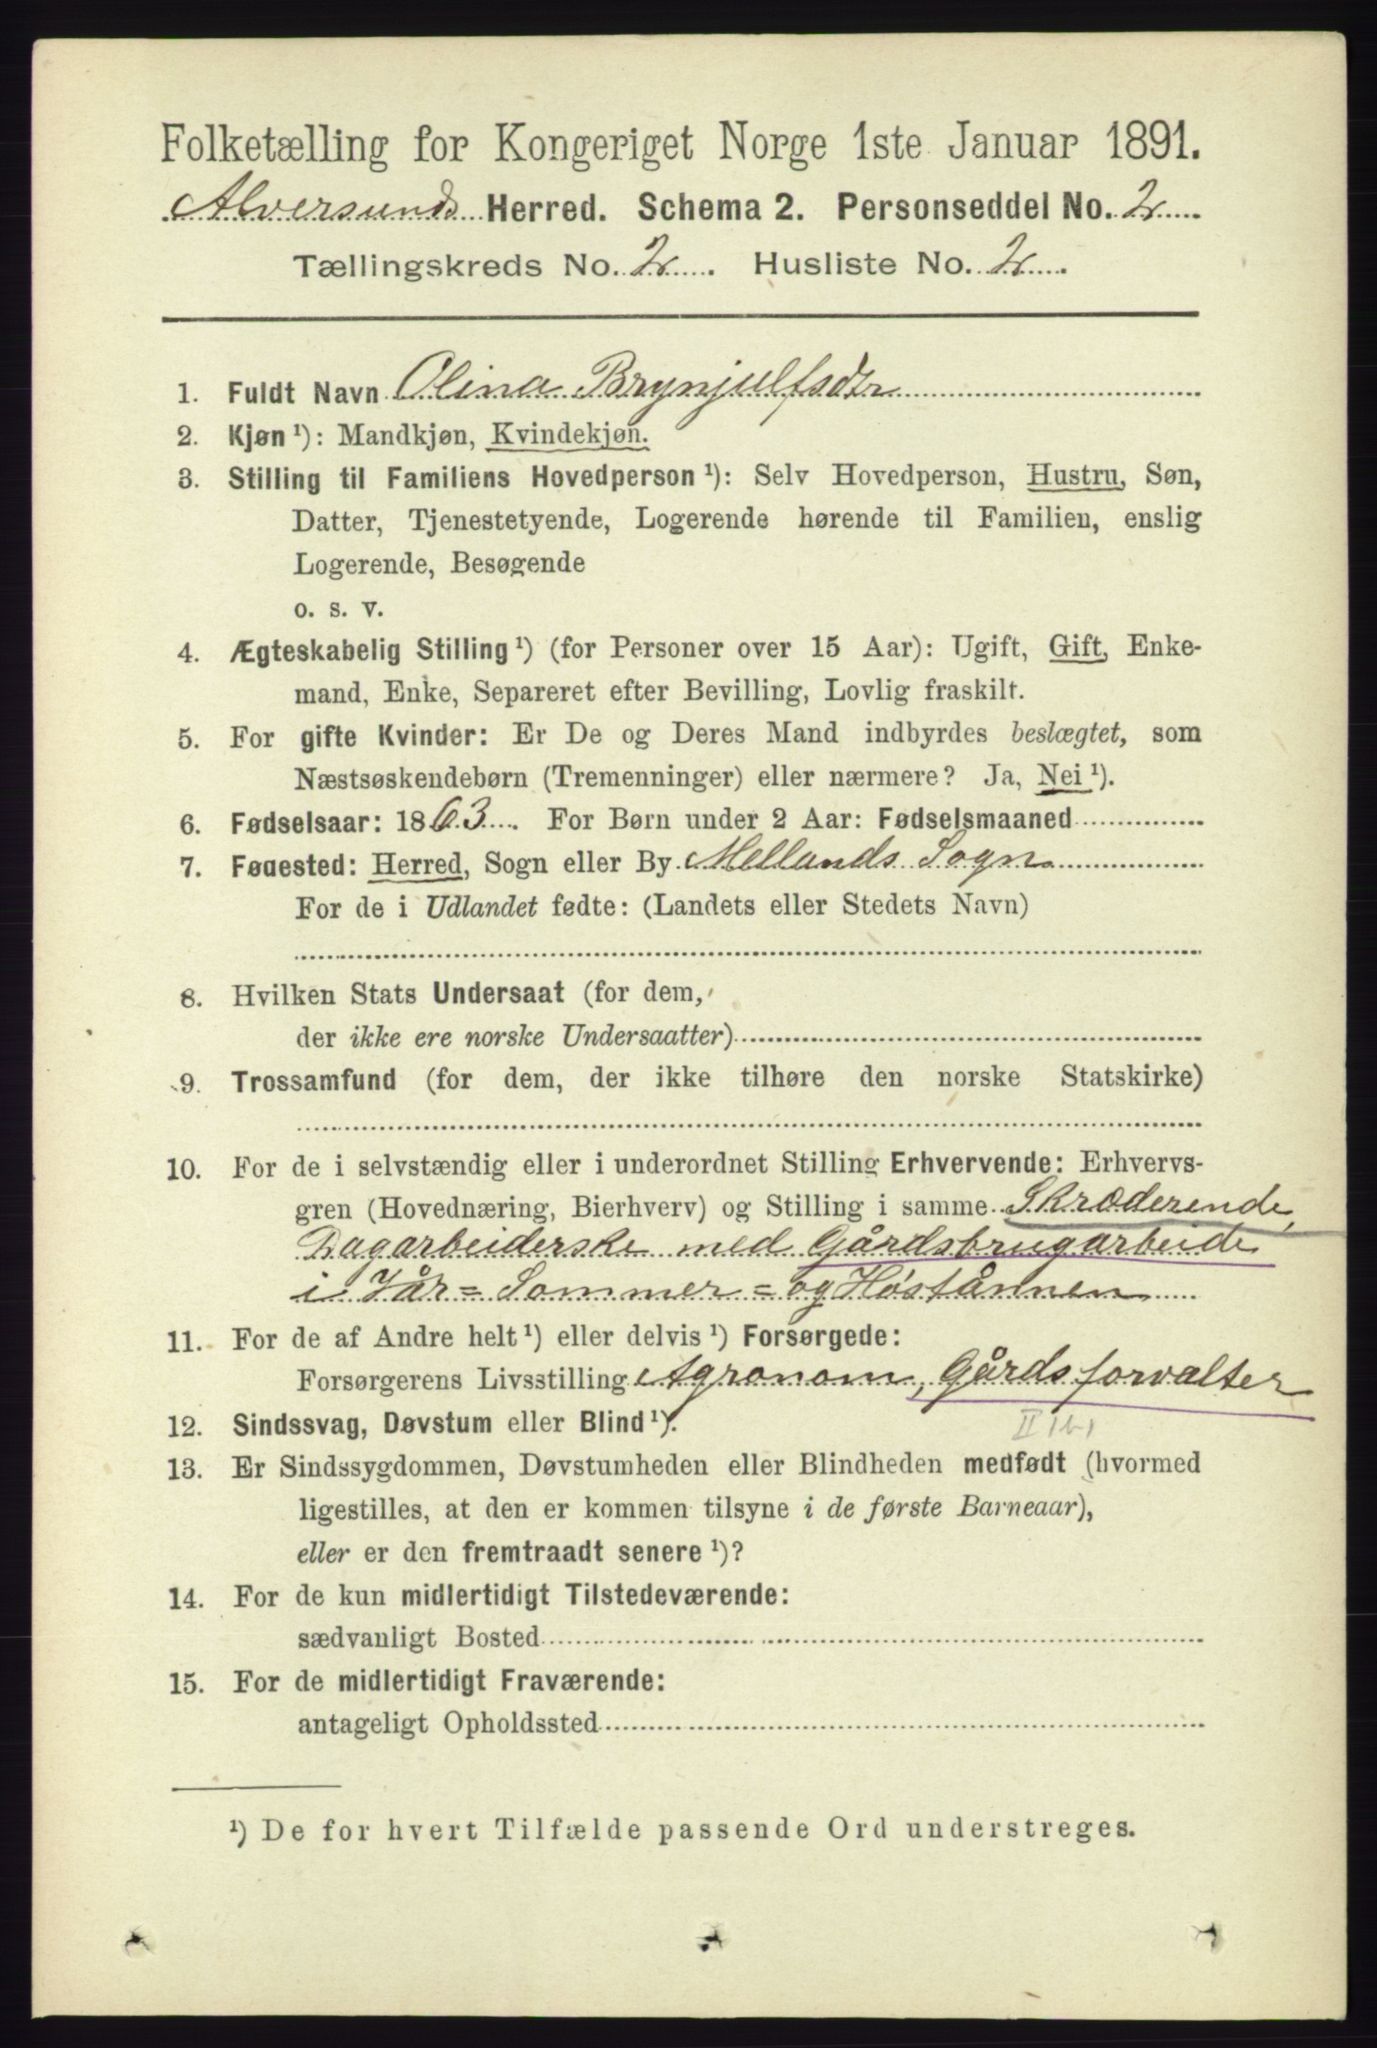 Folketælling for Kongeriget Norge 1ste Januar 1891.
Alversunds Herred. Schema 2. Personseddel No. 2
Tællingskreds No. 2. Husliste No. 2.
1. Fuldt Navn Olina Brynjulfsdtr
2. Kjøn ¹): Mandkjøn, Kvindekjøn.
3. Stilling til Familiens Hovedperson ¹): Selv Hovedperson, Hustru, Søn,
Datter, Tjenestetyende, Logerende hørende til Familien, enslig
Logerende, Besøgende
o. s. v.
4. Ægteskabelig Stilling ¹) (for Personer over 15 Aar): Ugift, Gift, Enke-
mand, Enke, Separeret efter Bevilling, Lovlig fraskilt.
5. For gifte Kvinder: Er De og Deres Mand indbyrdes beslægtet, som
Næstsøskendebørn (Tremenninger) eller nærmere? Ja, Nei ¹).
6. Fødselsaar: 1863. For Børn under 2 Aar: Fødselsmaaned
7. Føøested: Herred, Sogn eller By Mellands Sogn
For de i Udlandet fødte: (Landets eller Stedets Navn)
8. Hvilken Stats Undersaat (for dem,
der ikke ere norske Undersaatter)
9. Trossamfund (for dem, der ikke tilhøre den norske Statskirke)
10. For de i selvstændig eller i underordnet Stilling Erhvervende: Erhvervs-
gren (Hovednæring, Bierhverv) og Stilling i samme Skræderende,
Dagarbeiderske med Gårdsbrugarbeide
i Vår= Sommer= og Høstånnen
11. For de af Andre helt ¹) eller delvis ¹) Forsørgede:
Forsørgerens Livsstilling Agronom, Gårdsforvalter
12. Sindssvag, Døvstum eller Blind ¹).
13. Er Sindssygdommen, Døvstumheden eller Blindheden medfødt (hvormed
ligestilles, at den er kommen tilsyne i de første Barneaar),
eller er den fremtraadt senere ¹)?
14. For de kun midlertidigt Tilstedeværende:
sædvanligt Bosted
15. For de midlertidigt Fraværende:
antageligt Opholdssted
¹) De for hvert Tilfælde passende Ord understreges.